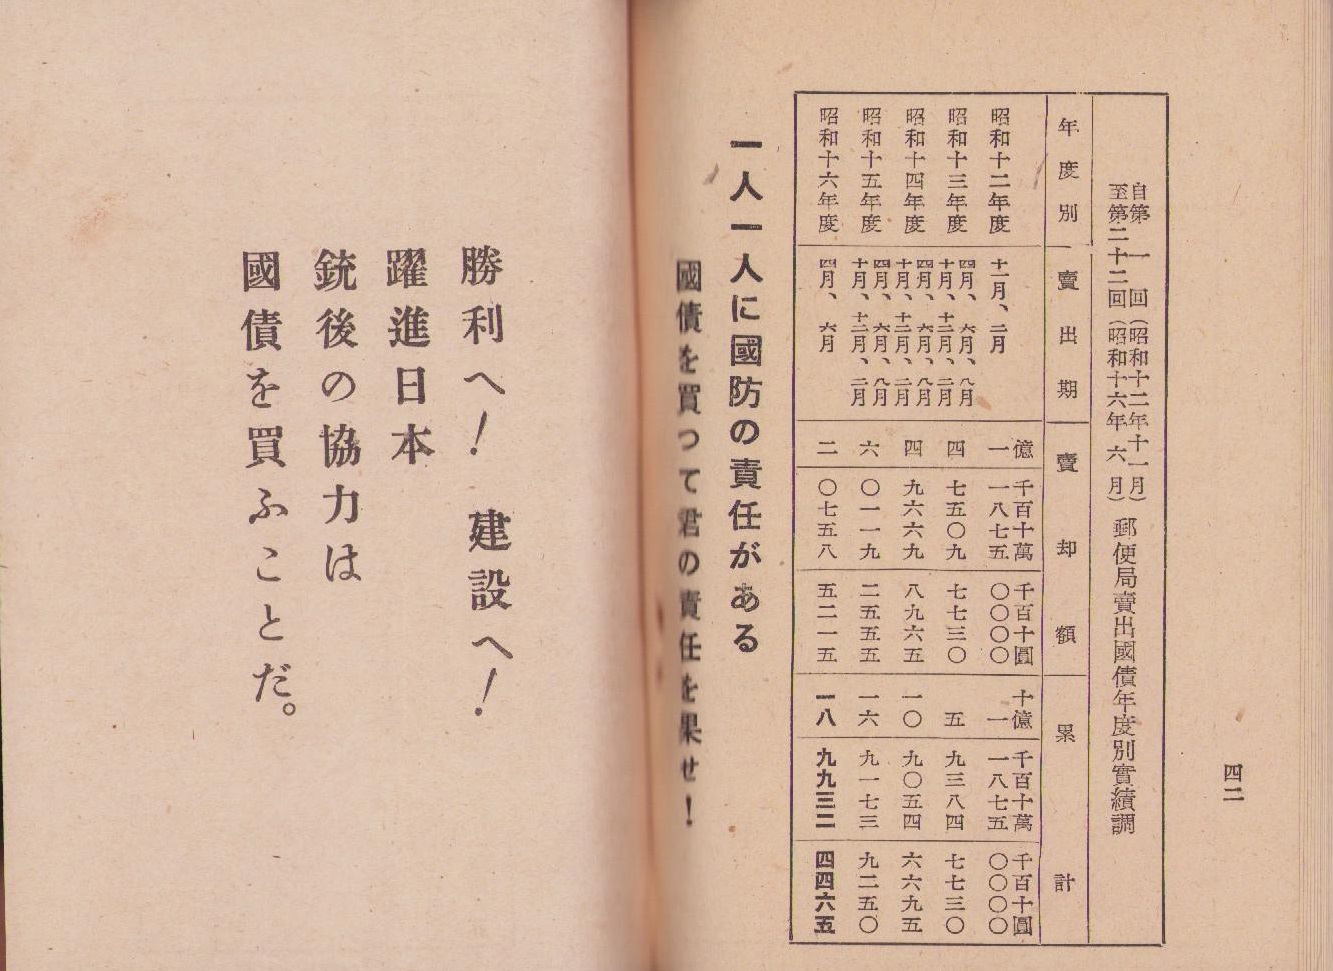 四二
自第 一 回(昭和十二年十一月)
至第二十二回(昭和十六年 六 月)
郵便局賣出國債年度別實績調
年度別 賣出期 賣却額 累計
億 千百十萬 千百十圓 十億 千百十萬 千百十圓
昭和十二年度 十一月、二月 一 一八七五 〇〇〇〇 一 一八七五 〇〇〇〇
昭和十三年度 四月、六月、八月
十月、十二月、二月 四 七五〇九 七七三〇 五 九三八四 七七三〇
昭和十四年度 四月、六月、八月
十月、十二月、二月 四 九六六九 八九六五 一〇 九〇五四 六六九五
昭和十五年度 四月、六月、八月
十月、十二月、二月 六 〇一一九 二五五五 一六 九一七三 九二五〇
昭和十六年度 四月、六月 二 〇七五八 五二一五 一八 九九三二 四四六五
一人一人に國防の責任がある
國債を買つて君の責任を果せ!
勝利へ! 建設へ!
躍進日本
銃後の協力は
國債を買ふことだ。